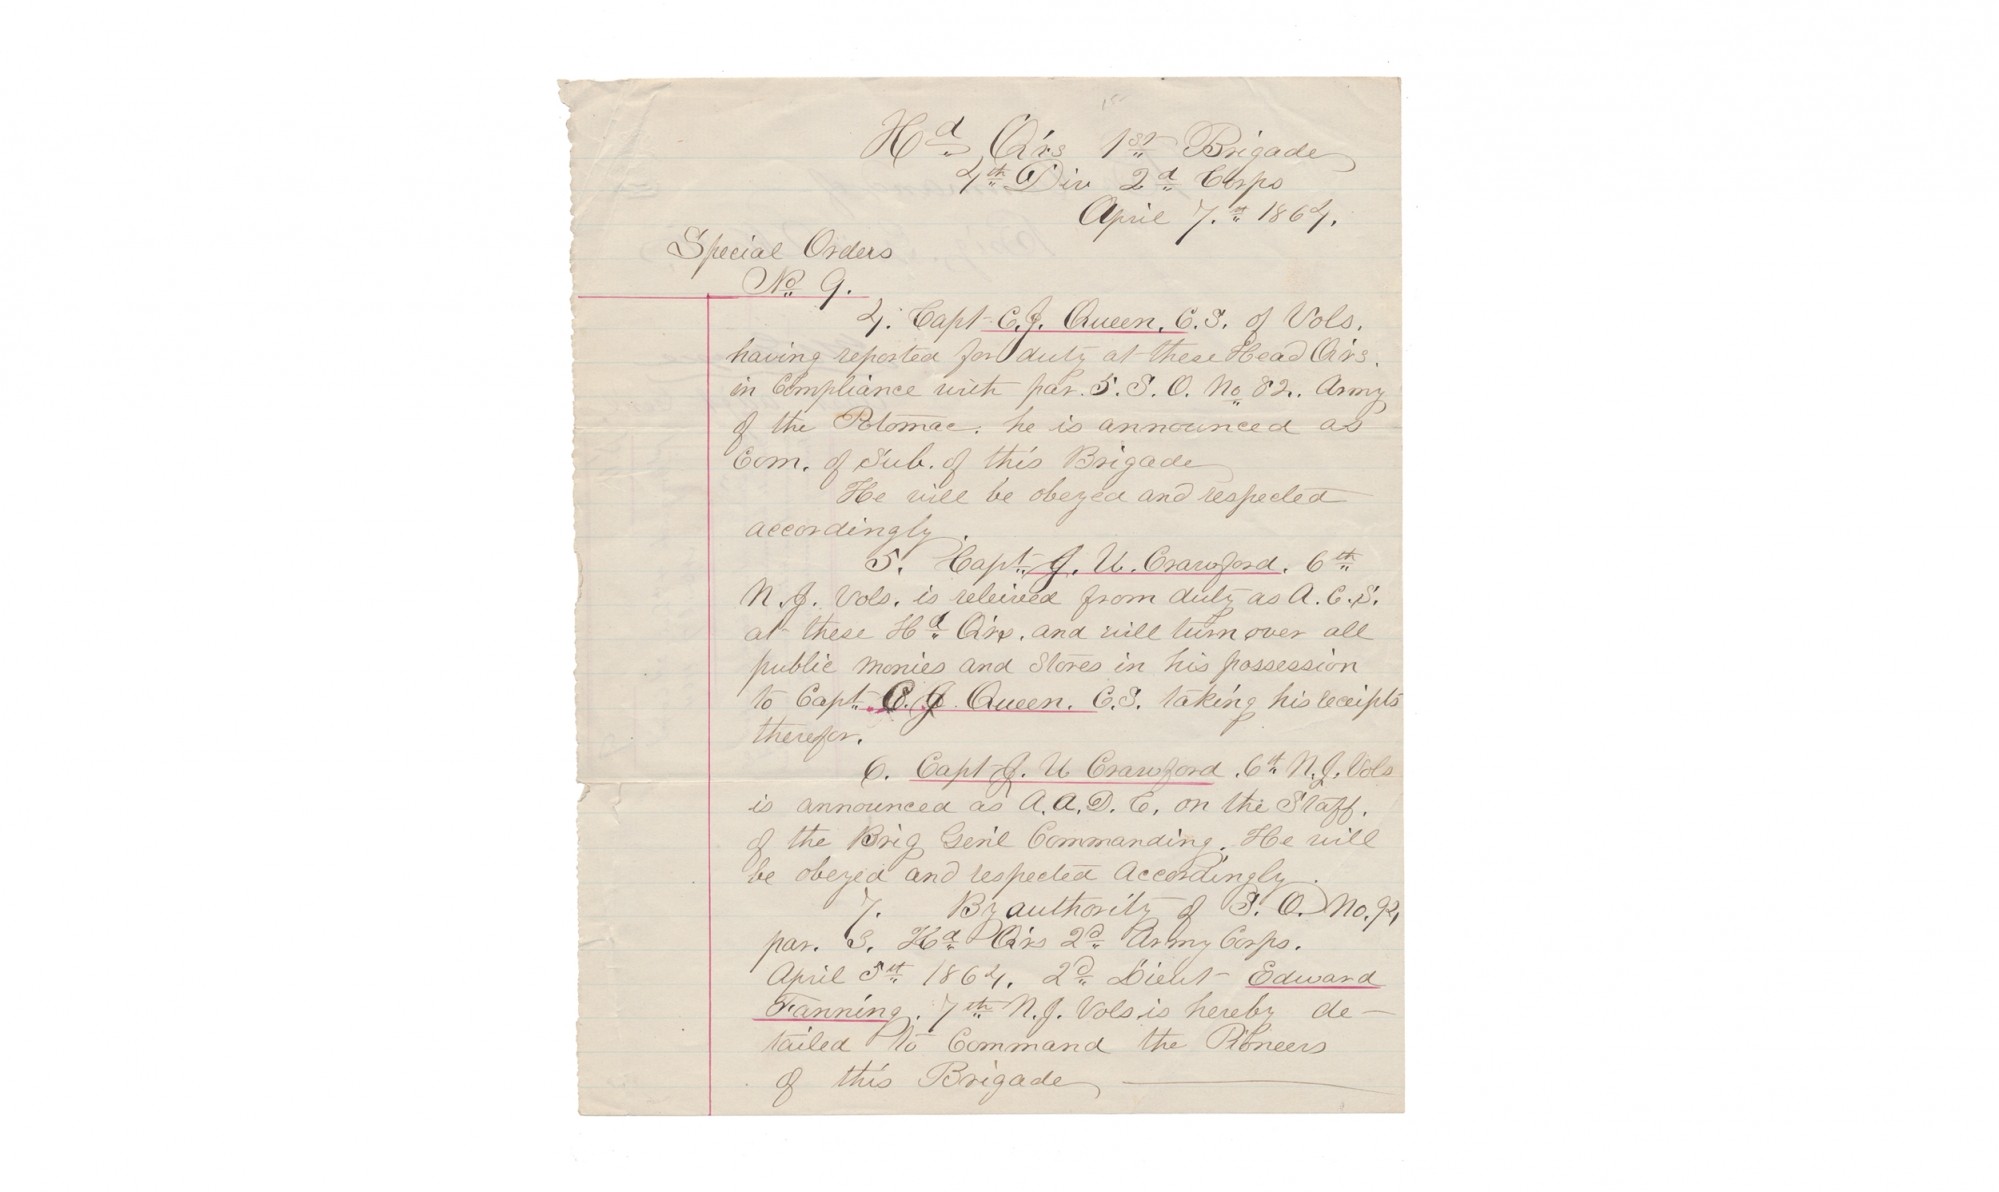 Hd Qrs 1st Brigade
4th Div 2d Corps
April 7th 1864.
Special Orders
No 9.
4. Capt C. J. Queen, C. S. of Vols.
having reported for duty at these Head Qrs.
in Compliance with par. 5. S. O. No 82. Army
of the Potomac. he is announced as
Com. of Sub. of this Brigade
He will be obeyed and respected
accordingly.
5. Capt J. U. Crawford. 6th
N. J. Vols. is releived from duty as A. C. S.
at these Hd Qrs. and will turn over all
public monies and Stores in his possession
to Capt C. J Queen. C. S. taking his receipts
therefor.
6. Capt J. U Crawford. 6th N. J. Vols
is announced as A. A. D. C. on the Staff.
of the Brig Genl Commanding. He will
be obeyed and respected accordingly.
7. By authority of S. O. No.
par. 3. Hd Qrs 2d Army Corps.
April 5th 1864. 2d Lieut Edward
Fanning. 7th N. J. Vols. is hereby de-
tailed to Command the Pioneers
of this Brigade